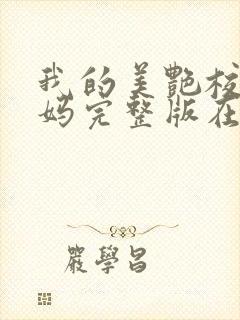 我的美艷校
妈完整版在
嚴學昌